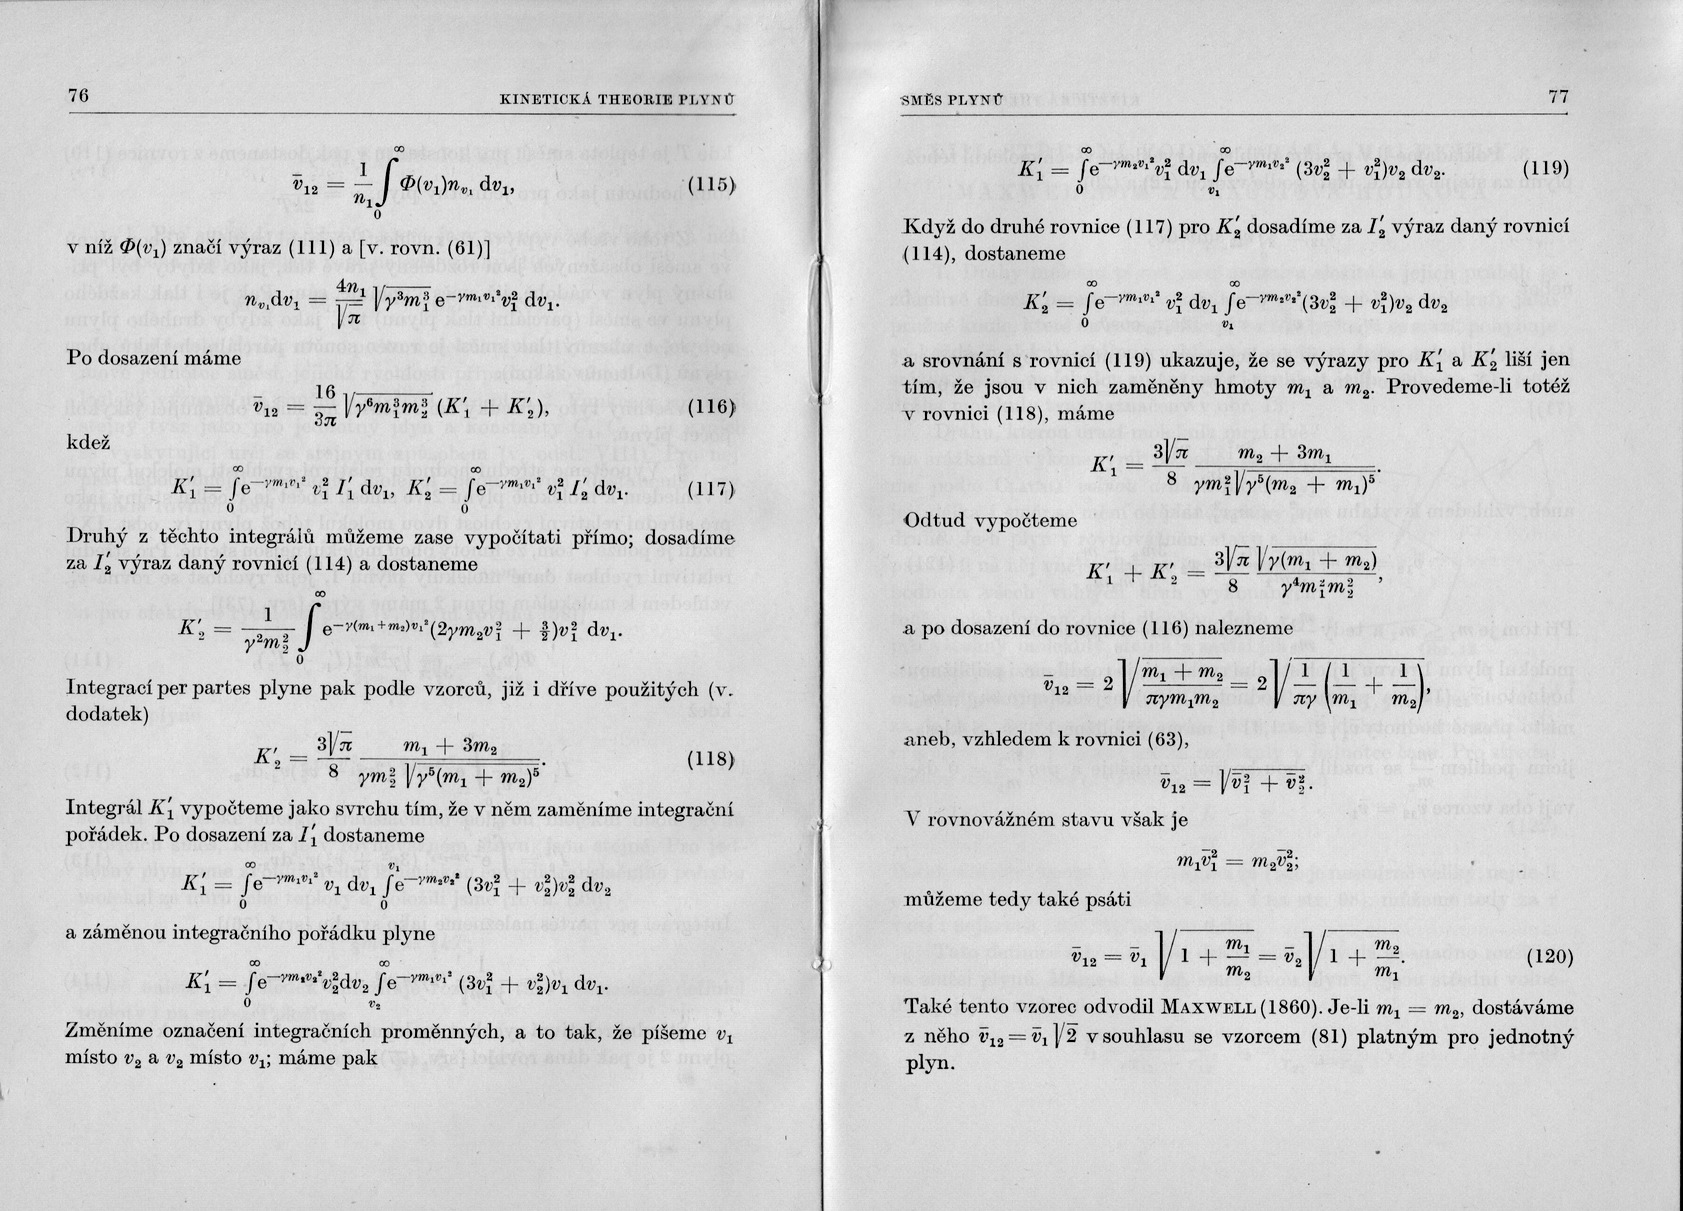 76 KINETICKÁ THEORIE PLYNŮ
$\bar{v}_{12} = \frac{1}{n_1} \int_0^\infty \Phi(v_1) n_{v_1} \, dv_1,$ (115)
v níž $\Phi(v_1)$ značí výraz (111) a [v. rovn. (61)]
$n_{v_1} dv_1 = \frac{4n_1}{\sqrt{\pi}} \sqrt{\gamma^3 m_1^3} \, e^{-\gamma m_1 v_1^2} v_1^2 \, dv_1.$
Po dosazení máme
$\bar{v}_{12} = \frac{16}{3\pi} \sqrt{\gamma^6 m_1^3 m_2^3} \, (K_1' + K_2'),$ (116)
kdež
$K_1' = \int_0^\infty e^{-\gamma m_1 v_1^2} v_1^2 I_1' \, dv_1, \; K_2' = \int_0^\infty e^{-\gamma m_1 v_1^2} v_1^2 I_2' \, dv_1.$ (117)
Druhý z těchto integrálů můžeme zase vypočítati přímo; dosadíme
za $I_2'$ výraz daný rovnicí (114) a dostaneme
$K_2' = \frac{1}{\gamma^2 m_2^2} \int_0^\infty e^{-\gamma(m_1 + m_2)v_1^2} (2\gamma m_2 v_1^2 + \frac{3}{2}) v_1^2 \, dv_1.$
Integrací per partes plyne pak podle vzorců, již i dříve použitých (v.
dodatek)
$K_2' = \frac{3\sqrt{\pi}}{8} \frac{m_1 + 3m_2}{\gamma m_2^2 \sqrt{\gamma^5 (m_1 + m_2)^5}}.$ (118)
Integrál $K_1'$ vypočteme jako svrchu tím, že v něm zaměníme integrační
pořádek. Po dosazení za $I_1'$ dostaneme
$K_1' = \int_0^\infty e^{-\gamma m_1 v_1^2} v_1 \, dv_1 \int_0^{v_1} e^{-\gamma m_2 v_2^2} (3v_1^2 + v_2^2) v_2^2 \, dv_2$
a záměnou integračního pořádku plyne
$K_1' = \int_0^\infty e^{-\gamma m_2 v_2^2} v_2^2 dv_2 \int_{v_2}^\infty e^{-\gamma m_1 v_1^2} (3v_1^2 + v_2^2) v_1 \, dv_1.$
Změníme označení integračních proměnných, a to tak, že píšeme $v_1$
místo $v_2$ a $v_2$ místo $v_1$; máme pak
SMĚS PLYNŮ 77
$K_1' = \int_0^\infty e^{-\gamma m_2 v_1^2} v_1^2 \, dv_1 \int_{v_1}^\infty e^{-\gamma m_1 v_2^2} (3v_2^2 + v_1^2) v_2 \, dv_2.$ (119)
Když do druhé rovnice (117) pro $K_2'$ dosadíme za $I_2'$ výraz daný rovnicí
(114), dostaneme
$K_2' = \int_0^\infty e^{-\gamma m_1 v_1^2} v_1^2 \, dv_1 \int_{v_1}^\infty e^{-\gamma m_2 v_2^2} (3v_2^2 + v_1^2) v_2 \, dv_2$
a srovnání s rovnicí (119) ukazuje, že se výrazy pro $K_1'$ a $K_2'$ liší jen
tím, že jsou v nich zaměněny hmoty $m_1$ a $m_2$. Provedeme-li totéž
v rovnici (118), máme
$K_1' = \frac{3\sqrt{\pi}}{8} \frac{m_2 + 3m_1}{\gamma m_1^2 \sqrt{\gamma^5 (m_2 + m_1)^5}}.$
Odtud vypočteme
$K_1' + K_2' = \frac{3\sqrt{\pi}}{8} \frac{\sqrt{\gamma(m_1 + m_2)}}{\gamma^4 m_1^2 m_2^2},$
a po dosazení do rovnice (116) nalezneme
$\bar{v}_{12} = 2 \sqrt{\frac{m_1 + m_2}{\pi\gamma m_1 m_2}} = 2 \sqrt{\frac{1}{\pi\gamma} \left(\frac{1}{m_1} + \frac{1}{m_2}\right)},$
aneb, vzhledem k rovnici (63),
$\bar{v}_{12} = \sqrt{\bar{v}_1^2 + \bar{v}_2^2}.$
V rovnovážném stavu však je
$m_1 \bar{v}_1^2 = m_2 \bar{v}_2^2;$
můžeme tedy také psáti
$\bar{v}_{12} = \bar{v}_1 \sqrt{1 + \frac{m_1}{m_2}} = \bar{v}_2 \sqrt{1 + \frac{m_2}{m_1}}.$ (120)
Také tento vzorec odvodil MAXWELL (1860). Je-li $m_1 = m_2$, dostáváme
z něho $\bar{v}_{12} = \bar{v}_1 \sqrt{2}$ v souhlasu se vzorcem (81) platným pro jednotný
plyn.